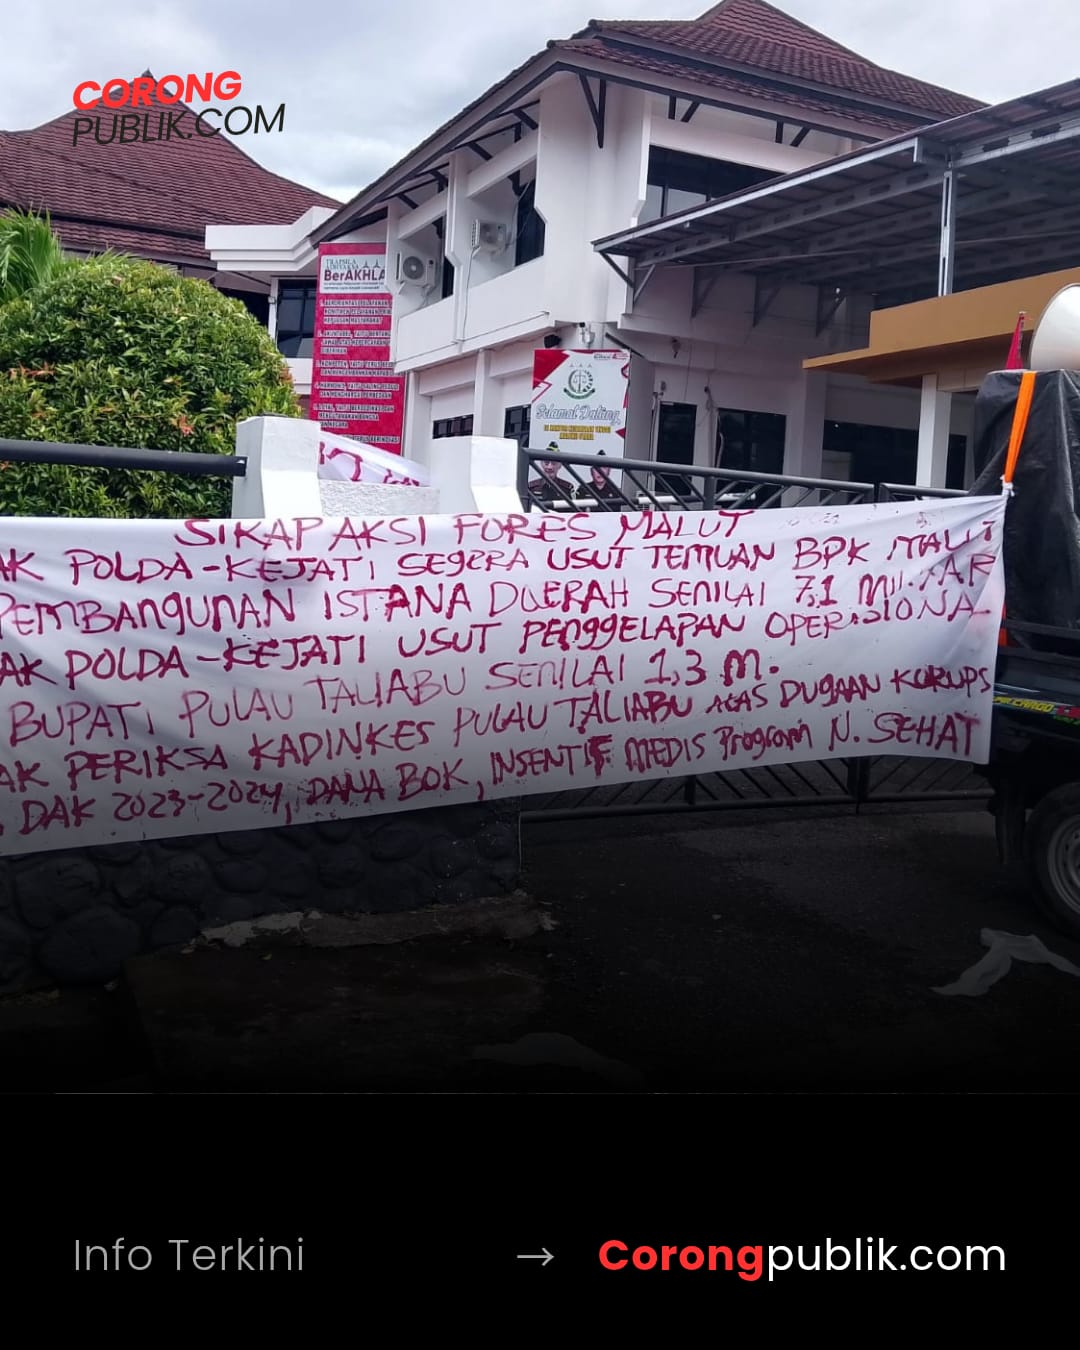 CORONG
PUBLIK.COM
TRAPSILA
ADHYAKSA
BerAKHLA
Selamat Datang
DI KANTOR KEJAKSAAN TINGGI
MALUKU UTARA
SIKAP AKSI FORES MALUT
AK POLDA-KEJATI SEGERA USUT TEMUAN BPK MALUT
PEMBANGUNAN ISTANA DAERAH SENILAI 7,1 MILIAR
AK POLDA-KEJATI USUT PENGGELAPAN OPERASIONAL
BUPATI PULAU TALIABU SENILAI 1,3 M.
AK PERIKSA KADINKES PULAU TALIABU ATAS DUGAAN KORUPS
DAK 2023-2024, DANA BOK, INSENTIF MEDIS Program N. SEHAT
Info Terkini → Corongpublik.com